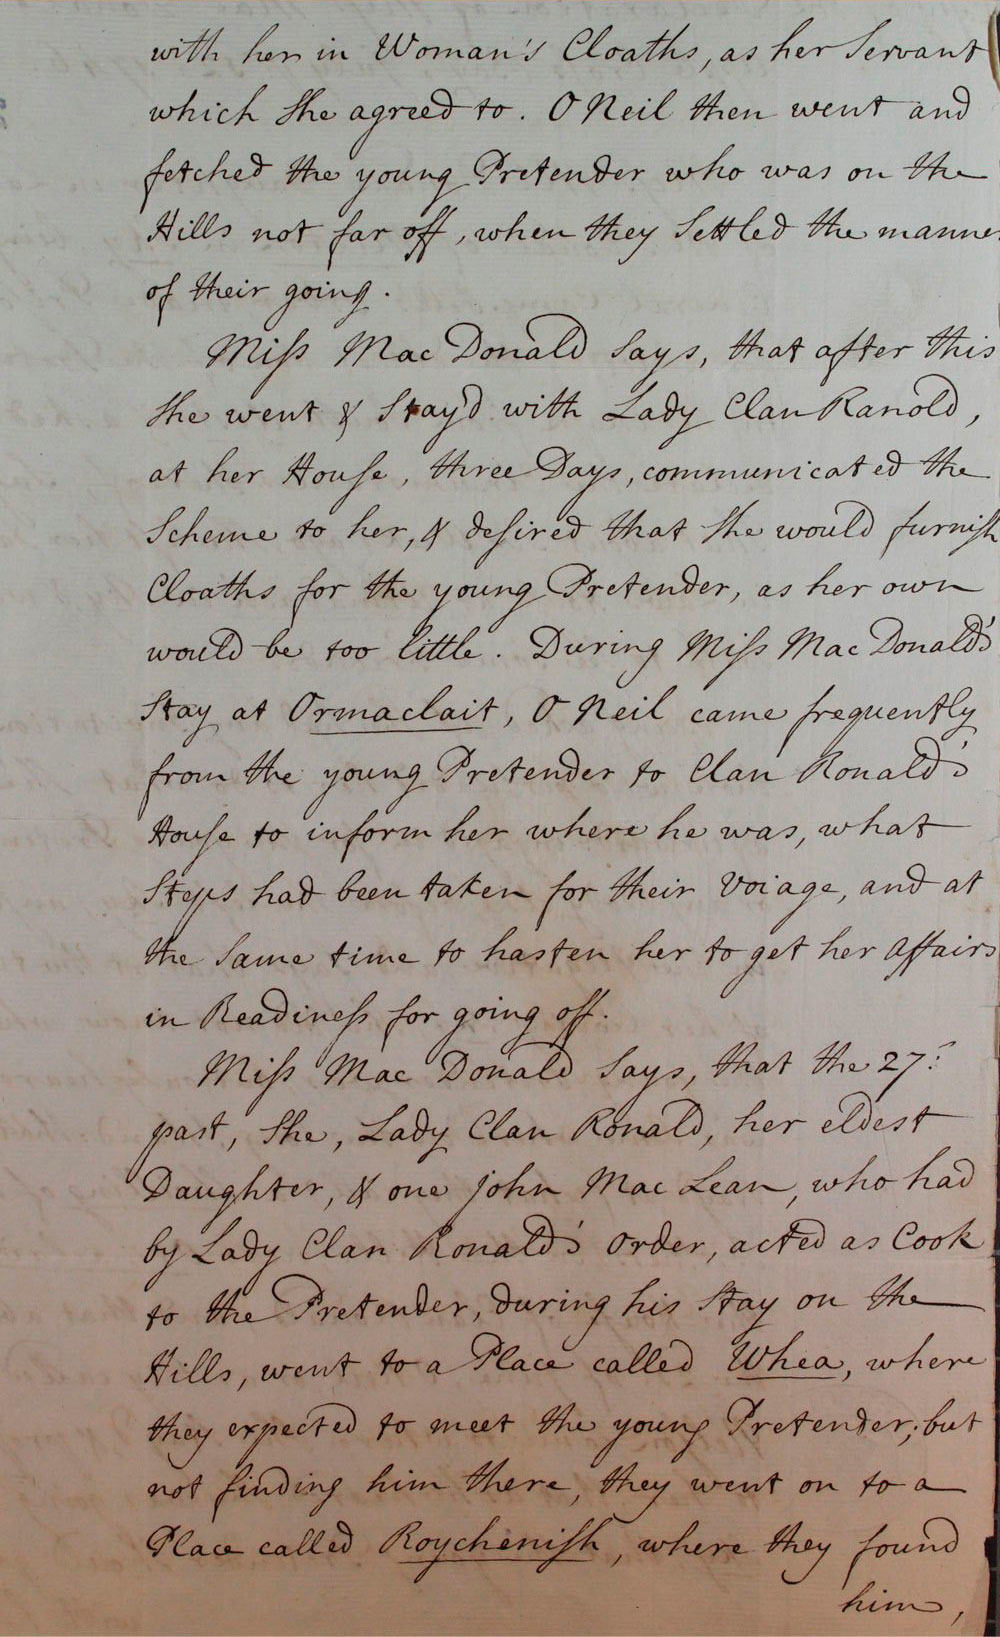 with her in Woman's Cloaths, as her Servant
which She agreed to. O Neil then went and
fetched the young Pretender who was on the
Hills not far off, when they Settled the manner
of their going.
Miſs Mac Donald Says, that after this
She went & Stay'd with Lady Clan Ranold,
at her Houſe, three Days, communicated the
Scheme to her, & deſired that She would furniſh
Cloaths for the young Pretender, as her own
would be too little. During Miſs Mac Donald's
Stay at Ormaclait, O Neil came frequently
from the young Pretender to Clan Ronald's
Houſe to inform her where he was, what
Steps had been taken for their Voiage, and at
the Same time to hasten her to get her Affairs
in Readineſs for going off.
Miſs Mac Donald Says, that the 27.
past, She, Lady Clan Ronald, her eldest
Daughter, & one John Mac Lean, who had
by Lady Clan Ronald's Order, acted as Cook
to the Pretender, during his Stay on the
Hills, went to a Place called Whea, where
they expected to meet the young Pretender; but
not finding him there, they went on to a
Place called Roycheniſh, where they found
him,